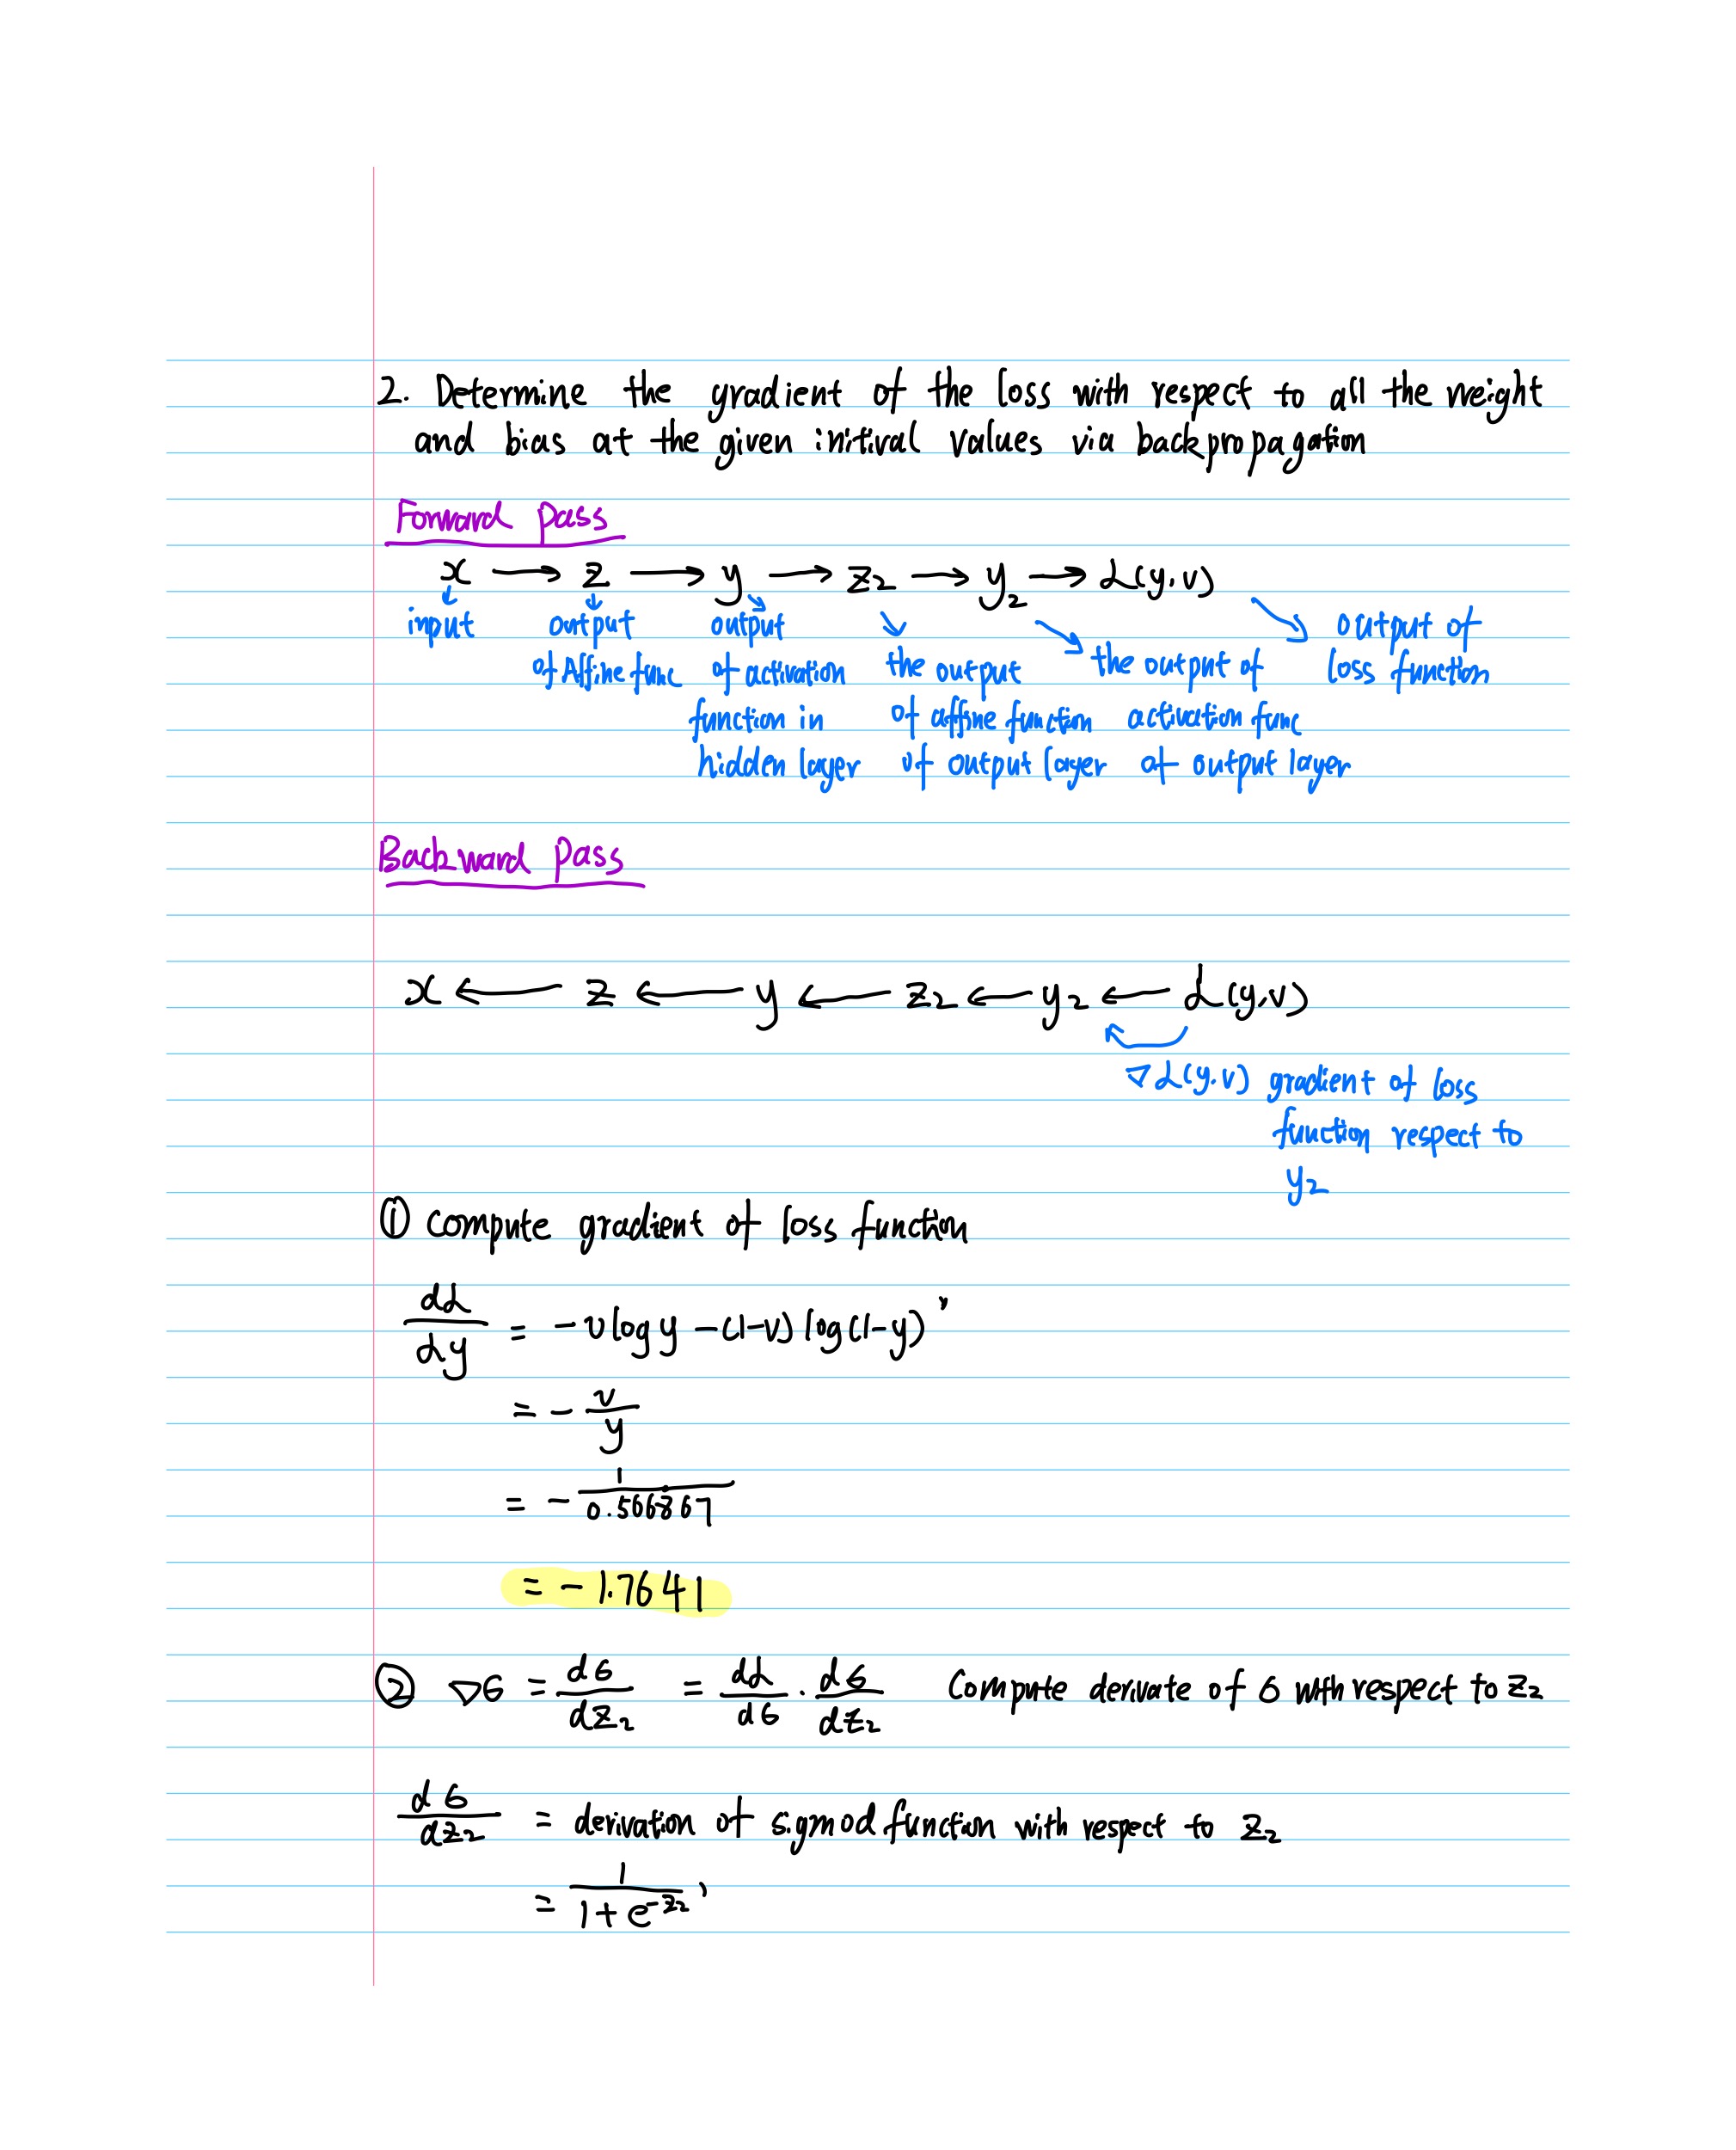 2. Determine the gradient of the loss with respect to all the weight
and bias at the given initival values via backpropagation
Forward Pass
x → z → y → z₂ → y₂ → L(y,v)
input
output of Affine func
output of activation function in hidden layer
the output of affine function of output layer
the output of activation func at output layer
output of loss function
Backward Pass
x ← z ← y ← z₂ ← y₂ ← L(y,v)
∇L(y,v) gradient of loss
function respect to
y₂
① Compute gradient of loss function
dL/dy = -v log y - (1-v) log(1-y)'
= - v/y
= - 1/0.566867
= -1.7641
② ∇σ = dσ/dz₂ = dL/dσ · dσ/dz₂ Compute derivate of σ with respect to z₂
dσ/dz₂ = derivation of sigmod function with respect to z₂
= 1/(1+e^-z₂)'